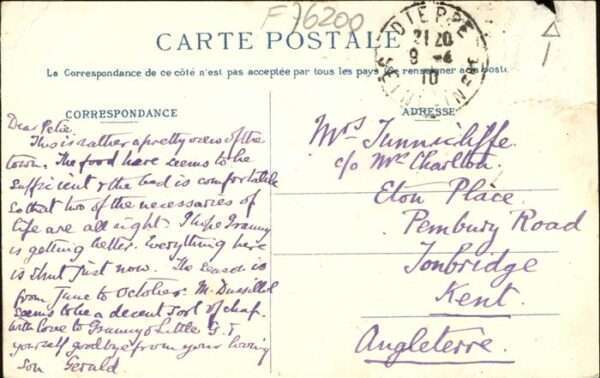 F 76200
CARTE POSTALE
DIEPPE
21 20
9 -4
10
SEINE INFRE
La Correspondance de ce côté n'est pas acceptée par tous les pays (se renseigner à la poste)
CORRESPONDANCE
Dear Petie.
This is rather a pretty view of the
town. The food here seems to be
sufficient & the bed is comfortable
so that two of the necessaries of
life are all right. I hope Granny
is getting better. Everything here
is shut just now. The season is
from June to October. M.
seems to be a decent sort of chap.
With love to Granny & Little G. T
yourself goodbye from your loving
son Gerald
ADRESSE
Mrs Tunnicliffe
c/o Mrs Charlton
Eton Place
Pembury Road
Tonbridge
Kent.
Angleterre.